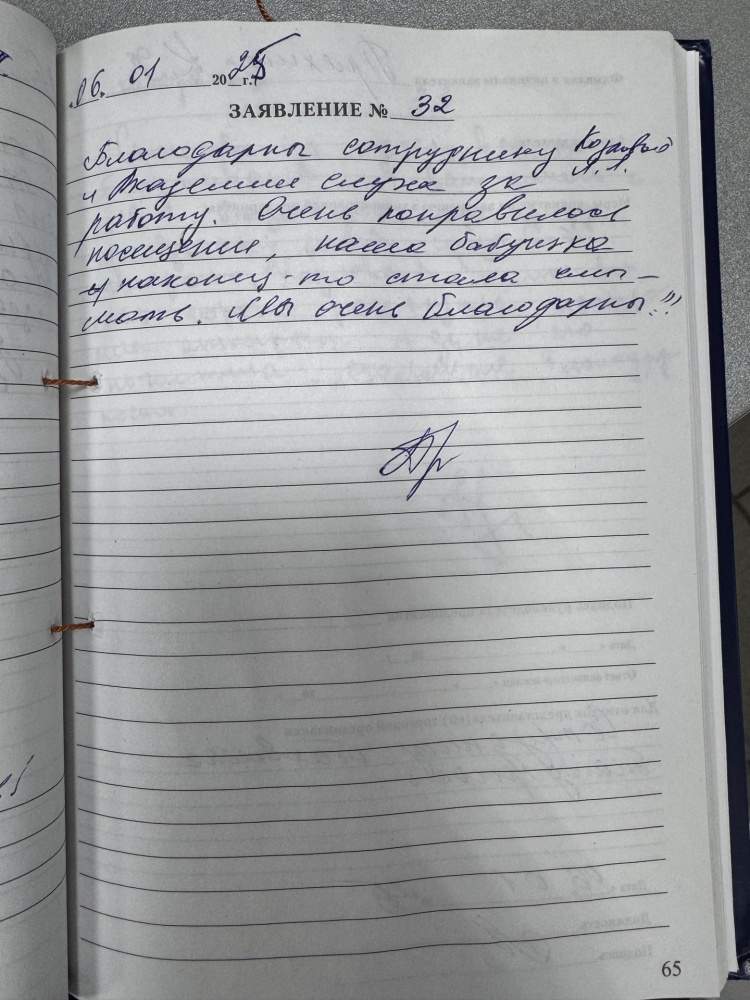 „06„ 01 2025 г.
ЗАЯВЛЕНИЕ № 32
Благодарны сотруднику Козловой
и Академии слуха за Л.Л.
работу. Очень понравилось
посещение, наша бабушка
наконец-то стала слы-
шать. Мы очень благодарны!!!
65